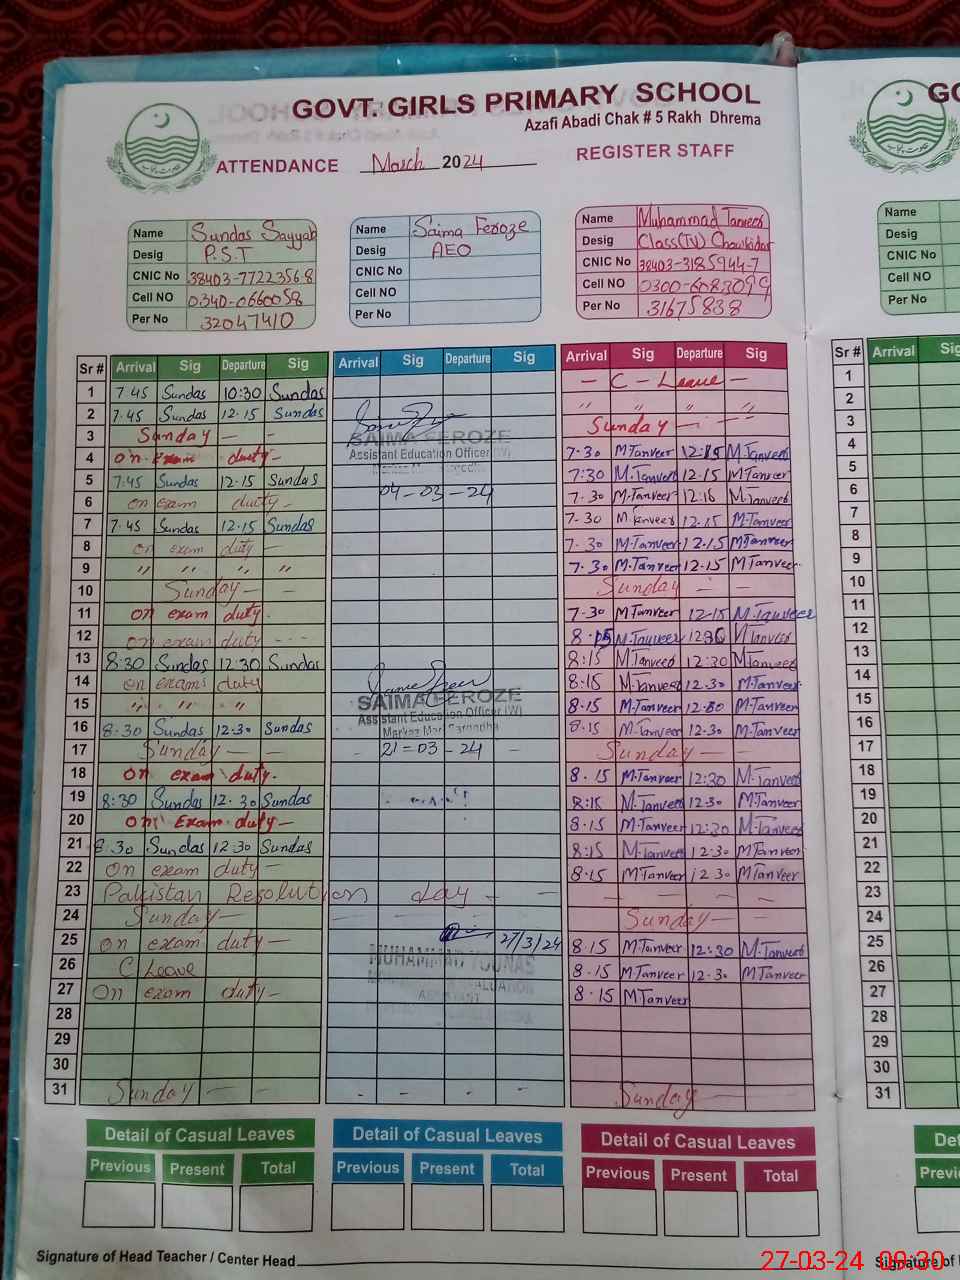 GOVT. GIRLS PRIMARY SCHOOL
Azafi Abadi Chak # 5 Rakh Dhrema
ATTENDANCE March 2024 REGISTER STAFF
Name Sundas Sayyab
Desig P.S.T
CNIC No 38403-77223568
Cell NO 0340-0660058
Per No 32047410
Name Saima Feroze
Desig AEO
CNIC No
Cell NO
Per No
Name Muhammad Tanveer
Desig Class(IV) Chowkidar
CNIC No 38403-3185944-7
Cell NO 0300-6083099
Per No 31675838
Name
Desig
CNIC No
Cell NO
Per No
Sr # Arrival Sig Departure Sig Arrival Sig Departure Sig Arrival Sig Departure Sig Sr # Arrival Sig
1 7.45 Sundas 10:30 Sundas - C - Leave - 1
2 7.45 Sundas 12.15 Sundas " " " " 2
3 Sunday - - Sunday - - 3
SAIMA FEROZE
4 on Exam duty - Assistant Education Officer (W) 7-30 M Tanveer 12:15 M.Tanveer 4
5 7.45 Sundas 12.15 Sundas 7:30 M.Tanveer 12.15 M.Tanveer 5
6 on exam duty - 04-03-24 7.30 M.Tanveer 12.16 M.Tanveer 6
7 7.45 Sundas 12.15 Sundas 7-30 M.Tanveer 12.15 M.Tanveer 7
8 on exam duty - 7.30 M.Tanveer 12.15 M Tanveer 8
9 " " " " 7.30 M.Tanveer 12.15 M Tanveer 9
10 Sunday - - Sunday - - 10
11 on exam duty. 7-30 M Tanveer 12-15 M.Tanveer 11
12 on exam duty - - - 8.15 M.Tanveer M Tanveer 12
13 8:30 Sundas 12:30 Sundas 8:15 M.Tanveer 12:30 M Tanveer 13
14 on exams duty 8.15 M.Tanveer 12.30 M.Tanveer 14
SAIMA FEROZE
15 " " " " Assistant Education Officer (W) 8.15 M.Tanveer 12.30 M.Tanveer 15
16 8.30 Sundas 12.30 Sundas 8.15 M.Tanveer 12.30 M.Tanveer 16
17 Sunday - - 21-03-24 - Sunday - - 17
18 on exam duty. 8.15 M.Tanveer 12:30 M.Tanveer 18
19 8:30 Sundas 12.30 Sundas 8:15 M.Tanveer 12.30 M.Tanveer 19
20 on Exam duty - 8.15 M.Tanveer 12:30 M.Tanveer 20
21 8.30 Sundas 12.30 Sundas 8:15 M.Tanveer 12.30 M.Tanveer 21
22 on exam duty - 8.15 M Tanveer 12.30 M Tanveer 22
23 Pakistan Resolution day - - - - - - 23
24 Sunday - - - - - Sunday - - 24
25 on exam duty - 27/3/24 8.15 M Tanveer 12:30 M.Tanveer 25
26 C Leave 8.15 M Tanveer 12.30 M Tanveer 26
27 On exam duty - 8.15 M Tanveer 27
28 28
29 29
30 30
31 Sunday - - - - - - Sunday - 31
Detail of Casual Leaves Detail of Casual Leaves Detail of Casual Leaves
Previous Present Total Previous Present Total Previous Present Total
Signature of Head Teacher / Center Head
27-03-24 09:30